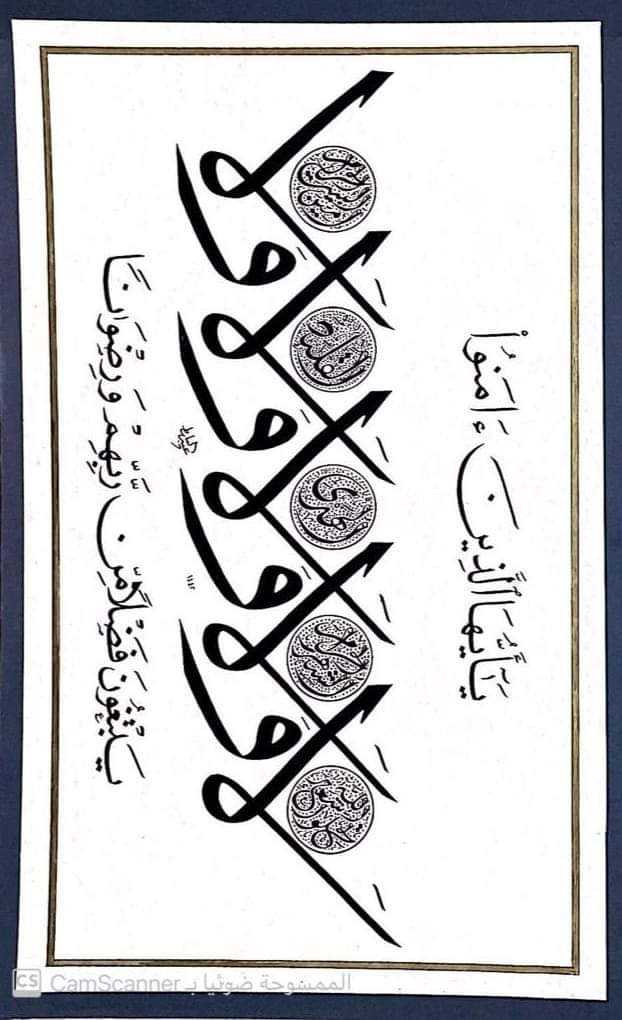 يَٰٓأَيُّهَا ٱلَّذِينَ ءَامَنُوا۟
لَا تحلوا شعائر الله وَلَا الشهر الحرام وَلَا الهدي وَلَا القلائد وَلَا آمين البيت الحرام
يَبْتَغُونَ فَضْلًا مِّن رَّبِّهِمْ وَرِضْوَٰنًا
CS CamScanner الممسوحة ضوئيا بـ